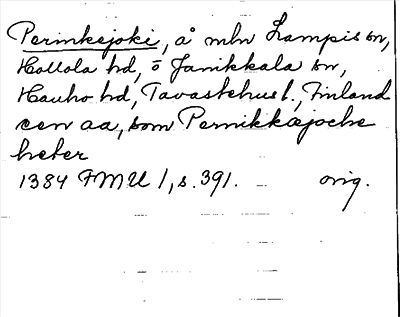 Perinkejoki, å mln Lampis sn,
Hollola hd, o Janikkala sn,
Hauho hd, Tavastehus l., Finland
een aa, som Pernikkæjoche
heter
1384 FMU 1, s. 391. orig.